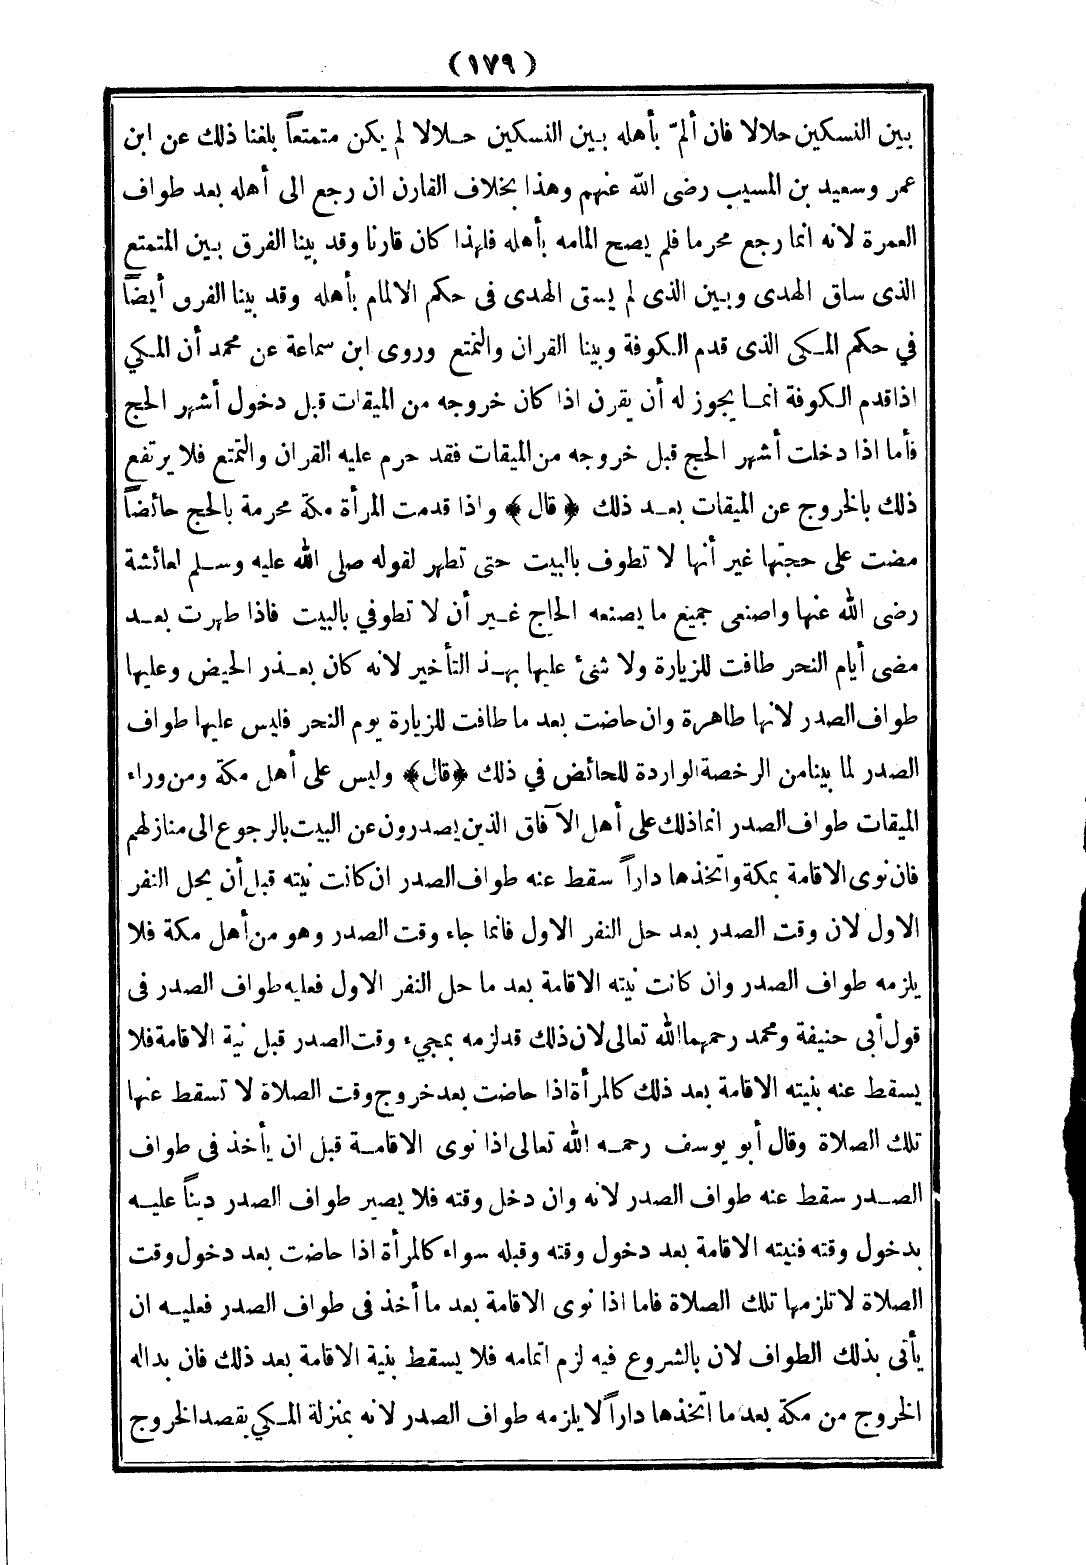 (١٧٩)
بين النسكين حلالا فان ألمّ بأهله بين النسكين حلالا لم يكن متمتعاً بلغنا ذلك عن ابن
عمر وسعيد بن المسيب رضى الله عنهم وهذا بخلاف القارن ان رجع الى أهله بعد طواف
العمرة لانه انما رجع محرما فلم يصح المامه بأهله فلهذا كان قارنا وقد بينا الفرق بين المتمتع
الذى ساق الهدى وبين الذى لم يسق الهدى فى حكم الالمام بأهله وقد بينا الفرق أيضاً
في حكم المكى الذى قدم الكوفة وبينا القران والتمتع وروى ابن سماعة عن محمد أن المكي
اذا قدم الكوفة انما يجوز له أن يقرن اذا كان خروجه من الميقات قبل دخول أشهر الحج
فأما اذا دخلت أشهر الحج قبل خروجه من الميقات فقد حرم عليه القران والتمتع فلا يرتفع
ذلك بالخروج عن الميقات بعد ذلك ﴿ قال ﴾ واذا قدمت المرأة مكة محرمة بالحج حائضاً
مضت على حجتها غير أنها لا تطوف بالبيت حتى تطهر لقوله صلى الله عليه وسلم لعائشة
رضى الله عنها واصنعى جميع ما يصنعه الحاج غير أن لا تطوفي بالبيت فاذا طهرت بعد
مضى أيام النحر طافت للزيارة ولا شئ عليها بهذا التأخير لانه كان بعذر الحيض وعليها
طواف الصدر لانها طاهرة وان حاضت بعد ما طافت للزيارة يوم النحر فليس عليها طواف
الصدر لما بينا من الرخصة الواردة للحائض في ذلك ﴿قال﴾ وليس على أهل مكة ومن وراء
الميقات طواف الصدر انما ذلك على أهل الآفاق الذين يصدرون عن البيت بالرجوع الى منازلهم
فان نوى الاقامة بمكة واتخذها داراً سقط عنه طواف الصدر ان كانت نيته قبل أن يحل النفر
الاول لان وقت الصدر بعد حل النفر الاول فانما جاء وقت الصدر وهو من أهل مكة فلا
يلزمه طواف الصدر وان كانت نيته الاقامة بعد ما حل النفر الاول فعليه طواف الصدر فى
قول أبى حنيفة ومحمد رحمهما الله تعالى لان ذلك قد لزمه بمجىء وقت الصدر قبل نية الاقامة فلا
يسقط عنه بنيته الاقامة بعد ذلك كالمرأة اذا حاضت بعد خروج وقت الصلاة لا تسقط عنها
تلك الصلاة وقال أبو يوسف رحمه الله تعالى اذا نوى الاقامة قبل ان يأخذ فى طواف
الصدر سقط عنه طواف الصدر لانه وان دخل وقته فلا يصير طواف الصدر ديناً عليه
بدخول وقته فنيته الاقامة بعد دخول وقته وقبله سواء كالمرأة اذا حاضت بعد دخول وقت
الصلاة لا تلزمها تلك الصلاة فاما اذا نوى الاقامة بعد ما أخذ فى طواف الصدر فعليه ان
يأتى بذلك الطواف لان بالشروع فيه لزم اتمامه فلا يسقط بنية الاقامة بعد ذلك فان بدا له
الخروج من مكة بعد ما اتخذها داراً لا يلزمه طواف الصدر لانه بمنزلة المكي يقصد الخروج